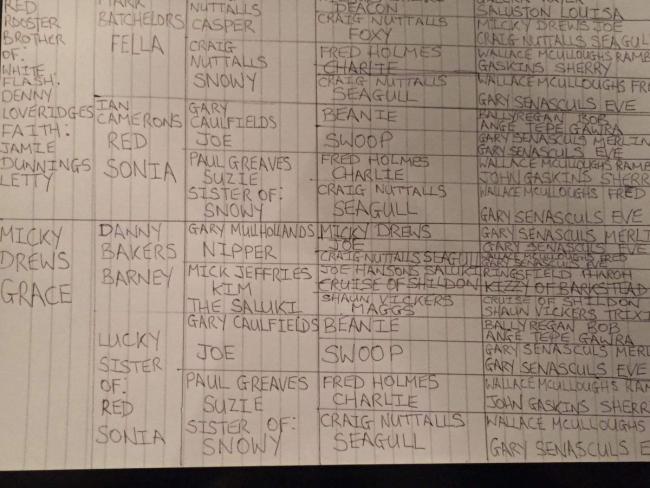 RED
ROOSTER
BROTHER
OF:
WHITE
FLASH.
DENNY
LOVERIDGES
FAITH:
JAMIE
DUNNINGS
LETTY
MICKY
DREWS
GRACE
BATCHELORS
FELLA
IAN
CAMERONS
RED
SONIA
DANNY
BAKERS
BARNEY
LUCKY
SISTER
OF:
RED
SONIA
NUTTALLS
CASPER
CRAIG
NUTTALLS
SNOWY
GARY
CAULFIELDS
JOE
PAUL GREAVES
SUZIE
SISTER OF:
SNOWY
GARY MULHOLLANDS
NIPPER
MICK JEFFRIES
KIM
THE SALUKI
GARY CAULFIELDS
JOE
PAUL GREAVES
SUZIE
SISTER OF:
SNOWY
DEACON
CRAIG NUTTALLS
FOXY
FRED HOLMES
CHARLIE
CRAIG NUTTALLS
SEAGULL
BEANIE
SWOOP
FRED HOLMES
CHARLIE
CRAIG NUTTALLS
SEAGULL
MICKY DREWS
JOE
CRAIG NUTTALLS SEAGULL
JOE HANSONS SALUKI
CRUISE OF SHILDON
SHAUN VICKERS
MAGGS
BEANIE
SWOOP
FRED HOLMES
CHARLIE
CRAIG NUTTALLS
SEAGULL
SALUSTON LOUISA
MICKY DREWS JOE
CRAIG NUTTALLS SEAGUL
WALLACE MCULLOUGHS RAMB
GASKINS SHERRY
WALLACE MCULLOUGHS FR
GARY SENASCULS EVE
BALLYREGAN BOB
ANGE TEPE GAWRA
GARY SENASCULS MERLIN
GARY SENASCULS EVE
WALLACE MCULLOUGHS RAMB
JOHN GASKINS SHERR
WALLACE MCULLOUGHS FRED
GARY SENASCULS EVE
GARY SENASCULS MERLI
GARY SENASCULS EVE
WALLACE MCULLOUGHS FRED
GARY SENASCULS EVE
RINGSFIELD PHAROH
KIZZY OF BARKSTEAD
CRUISE OF SHILDON
SHAUN VICKERS TRIXI
BALLYREGAN BOB
ANGE TEPE GAWRA
GARY SENASCULS MERL
GARY SENASCULS EVE
WALLACE MCULLOUGHS RAM
JOHN GASKINS SHERR
WALLACE MCULLOUGHS
GARY SENASCULS E